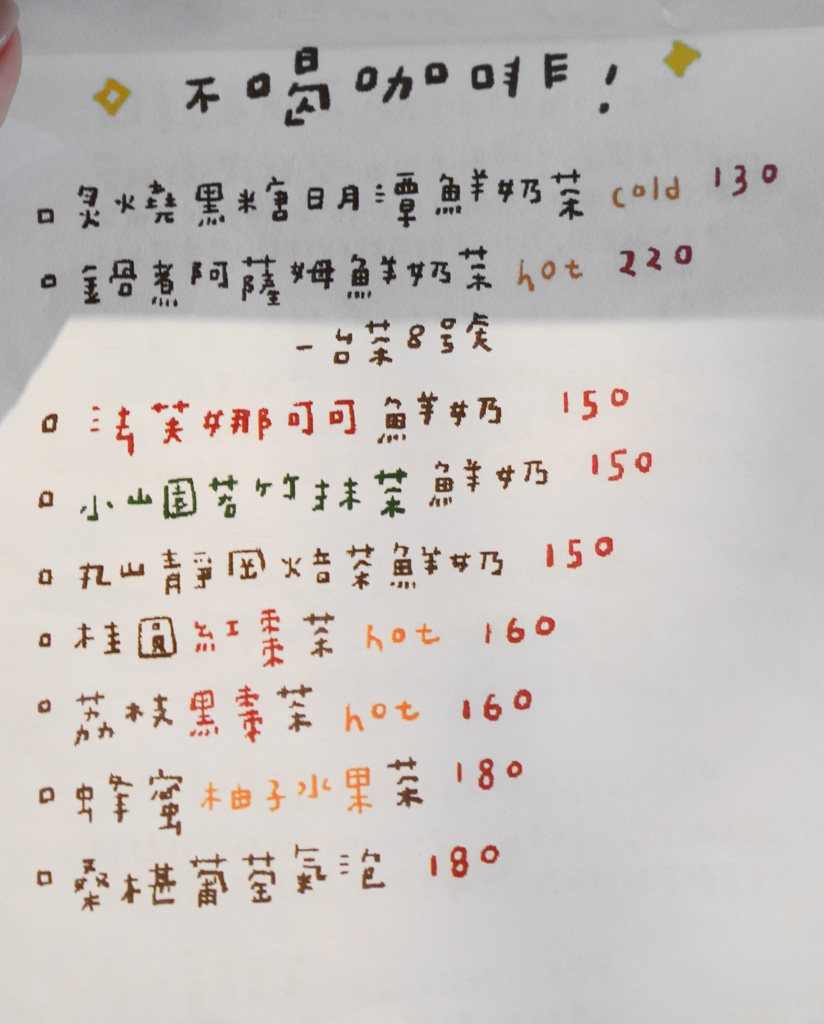 不喝咖啡!
炭火燒黑糖日月潭魚羊奶茶 cold 130
金骨煮阿薩姆魚羊奶茶 hot 220
一台茶8号茶
法芙娜可可魚羊奶 150
小山園若竹抹茶魚羊奶 150
丸山靜岡焙茶魚羊奶 150
桂圓紅棗茶 hot 160
荔枝黑棗茶 hot 160
蜂蜜柚子水果茶 180
桑椹葡萄氣泡 180